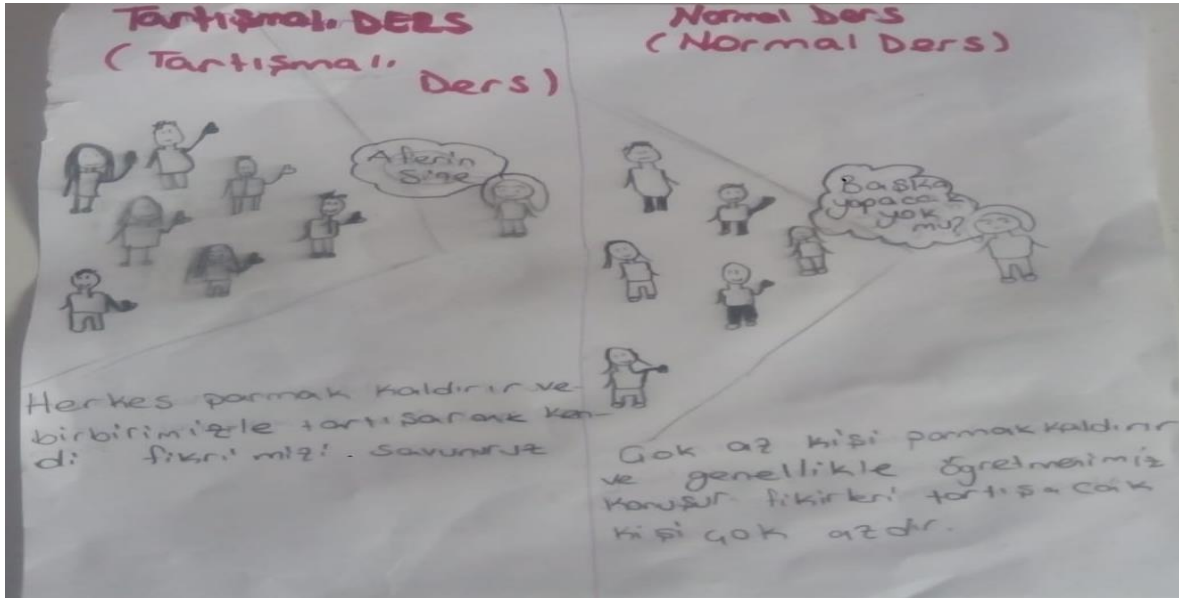 Tartışmalı DERS
(Tartışmalı
Ders)
Aferin
Size
Herkes parmak kaldırır ve
birbirimizle tartışarak ken-
di fikrimizi savunuruz
Normal Ders
(Normal Ders)
Başka
yapacak
yok
mu?
Çok az kişi parmak kaldırır
ve genellikle öğretmenimiz
konuşur fikirleri tartışacak
kişi çok azdır.